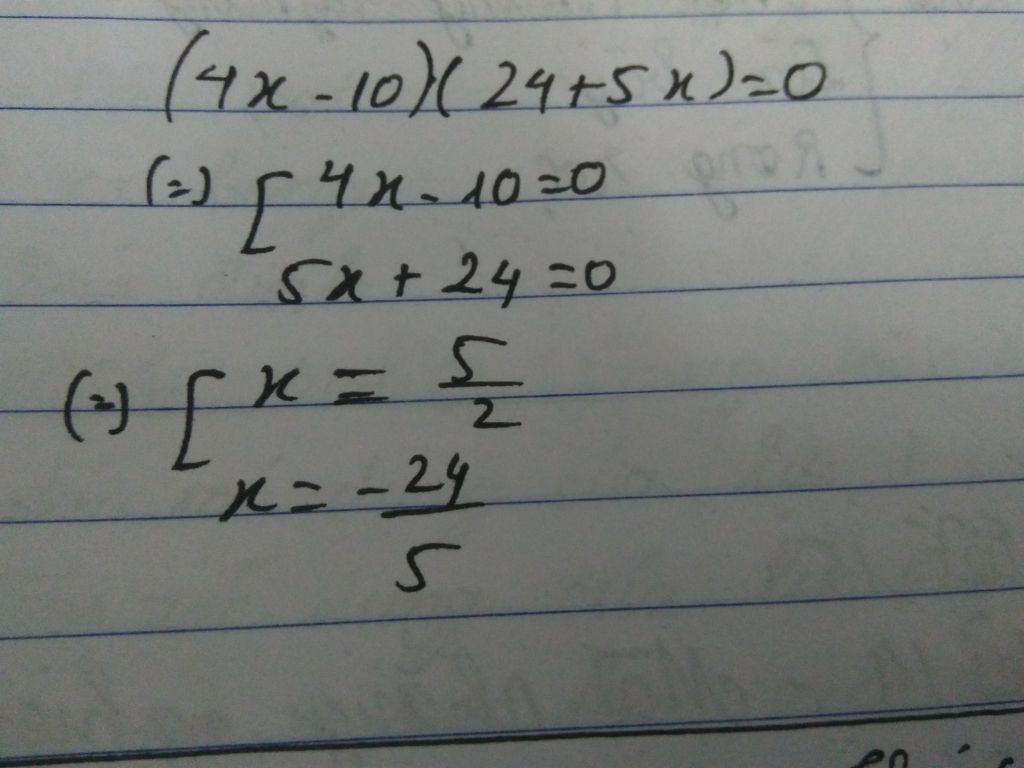 (4x-10)(24+5x)=0
(=) [ 4x-10=0
5x+24=0
(=) [ x = 5/2
x = -24/5